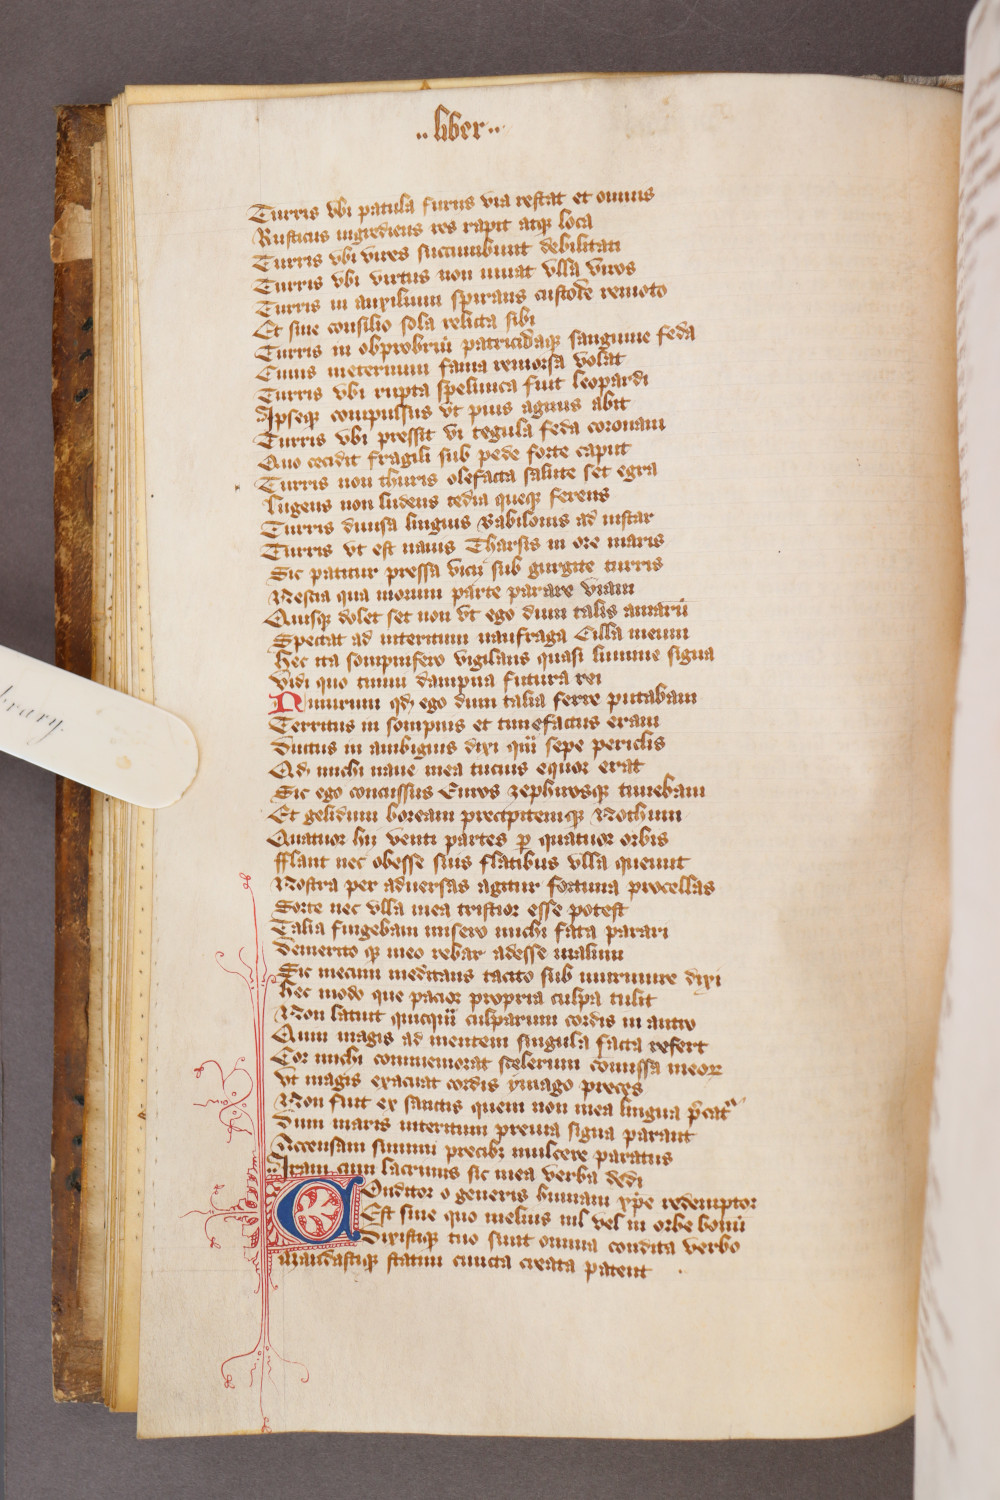 ..liber..
Turris vbi patula furns via restat et omnis
Rusticus ingrediens res rapit atqꝫ loca
Turris vbi vires succumbunt debilitati
Turris vbi virtus non iuuat vlla viros
Turris in auxilium spirans custode remoto
Et sine consilio sola relicta sibi
Turris in obprobriū patricidaqꝫ sanguine feda
Cuius ineternum fama remorsa volat
Turris vbi rupta spelunca fuit leopardi
Ipseqꝫ compulsus vt pius agnus abit
Turris vbi pressit vi tegula feda coronam
Quo cecidit fragili sub pede forte caput
Turris non thuris olefacta salute set egra
Lugens non ludens tedia queqꝫ ferens
Turris diuisa linguis Babilonis ad instar
Turris vt est nauis Tharsis in ore maris
Sic patitur pressa vicij sub gurgite turris
Nescia qua morum parte parare viam
Quisqꝫ dolet set non vt ego dum talis amarū
Spectat ad interitum naufraga Cilla meum
Hec ita sompnifero vigilans quasi lumine signa
Vidi quo timui dampna futura rei
Nimirum qđ ego dum talia ferre putabam
Territus in sompnis et timefactus eram
Ductus in ambiguis dixi qui sepe periclis
Qđ michi naue mea tucius equor erat
Sic ego concussus Euros zephirosqꝫ timebam
Et gelidum boream precipitemqꝫ Nothum
Quatuor hii venti partes ꝑ quatuor orbis
fflant nec obesse suis flatibus vlla queunt
Nostra per aduersas agitur fortuna procellas
Sorte nec vlla mea tristior esse potest
Talia fingebam misero michi fata parari
Demerito qꝫ meo rebar adesse malum
Sic mecum meditans tacito sub murmure dixi
Hec modo que pacior propria culpa tulit
Non latuit quicqū culparum cordis in antro
Quin magis ad mentem singula facta refert
Cor michi commemorat scelerum cōmissa meoꝝ
Vt magis exacuat cordis ymago preces
Non fuit ex sanctis quem non mea lingua p̄catᷣ
Dum maris interitum preuia signa parant
Accensam summi precibꝫ mulcere paratus
Iram cum lacrimis sic mea verba dedi
Conditor o generis humani xp̄e redemptor
Est sine quo melius nil vel in orbe bonū
Dixistiqꝫ tuo sunt omnia condita verbo
Mandastiqꝫ statim cuncta creata patent
brary.